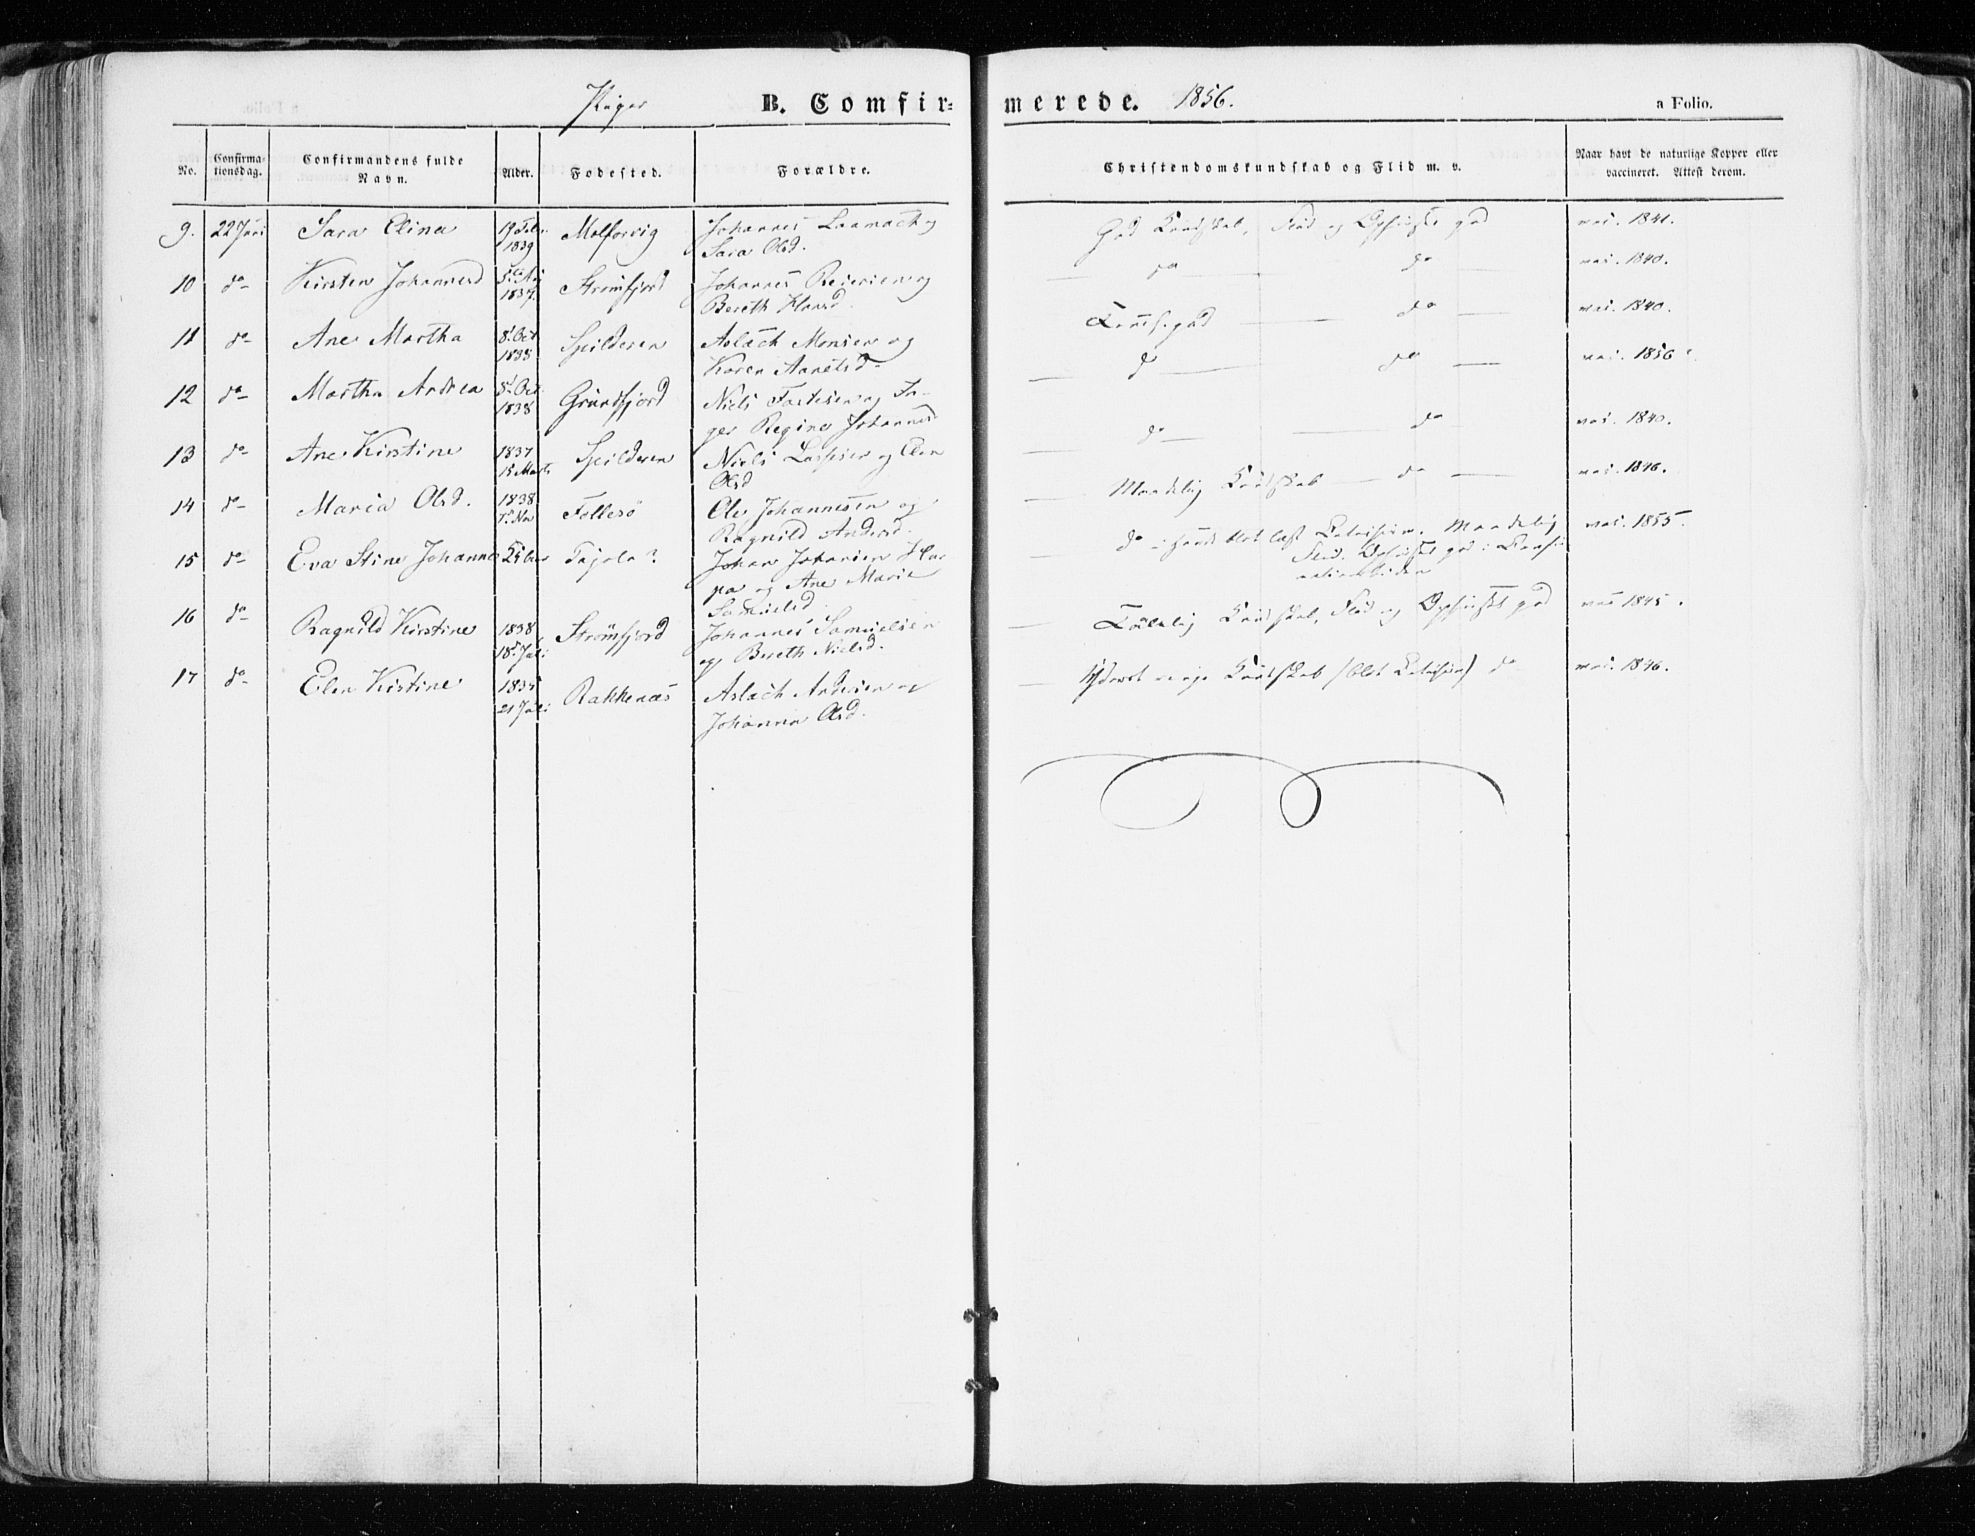 Piger B. Comfirmerede. 1856. a Folio.
No. Confirmationsdag. Confirmandens fulde Navn. Alder. Fodested. Forældre. Christendomskundskab og Flid m. v. Naar havt de naturlige Kopper eller vaccineret. Attest derom.
9. 22 Juni Sara Elina 19 Febr. 1839 Molforvig Johannes Laamach og
Sara Olsd. God Kundskab, Flid og Opførsel god vac. 1841.
10 do Kirsten Johannesd 1837. Strømfjord Johannes Reiersen og
Bereth Hansd. do do vac. 1840.
11 do Ane Martha 8 Oct 1838 Spilderen Aslach Monsen og
Karen Anetsd. god do vac. 1840.
12 do Martha Andrea 8 Oct. 1838 Grundfjord Niels
Regine Johannesd do do vac. 1856
13 do Ane Kirstine 1837 15 Marts Spilderen Niels Larsen og Elen
Olsd do do vac. 1840.
14 do Maria Olsd. 1838 Follesö Ole Johannesen og
Ragnild Andersd. Maadelig Kundskab do vac. 1846.
15 do Eva Stine Johannes Tajola? Johan Johansen
og Ane Marie
Samuelsd do Maadelig
Flid. Opførsel god i
vac. 1855.
16 do Ragnild Kirstine 1838 18 Juli Strömfjord Johannes Samuelsen
og Bereth Nielsd. Taalelig Kundskab, Flid og Opførsel god vac 1845.
17 do Elen Kirstine 1835 21 Juli Rakkenæs Aslach Andersen og
Johanna Olsd. Yderst ringe Kundskab do vac. 1846.